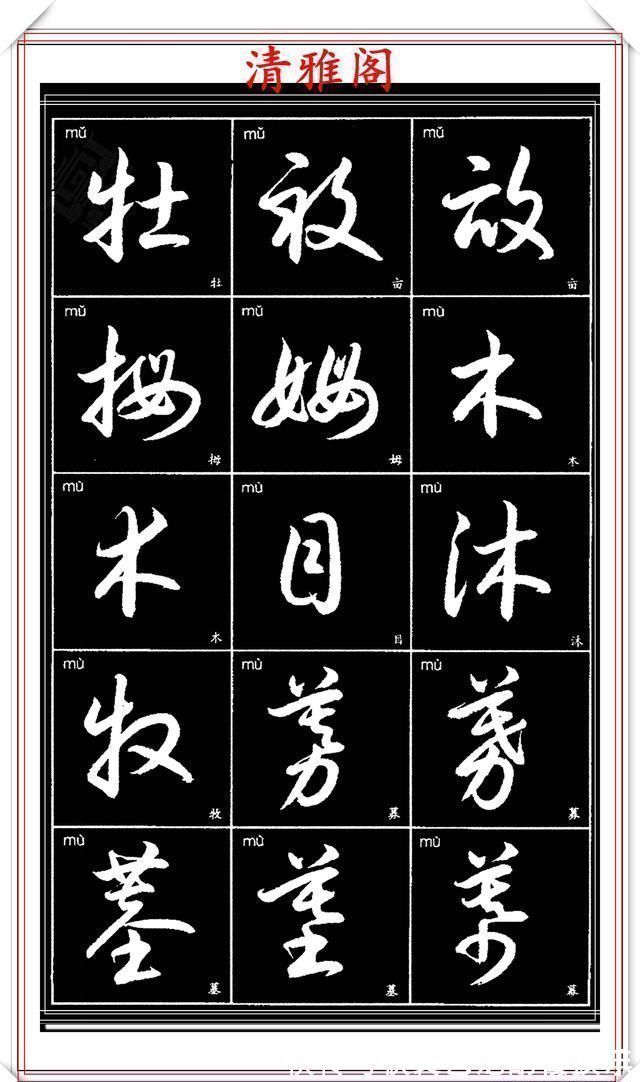 清雅阁
mǔ mǔ mǔ
牡 亩 亩
牡 亩 亩
mǔ mǔ mù
拇 姆 木
拇 姆 木
mù mù mù
木 目 沐
木 目 沐
mù mù mù
牧 募 募
牧 募 募
mù mù mù
墓 墓 幕
墓 墓 幕